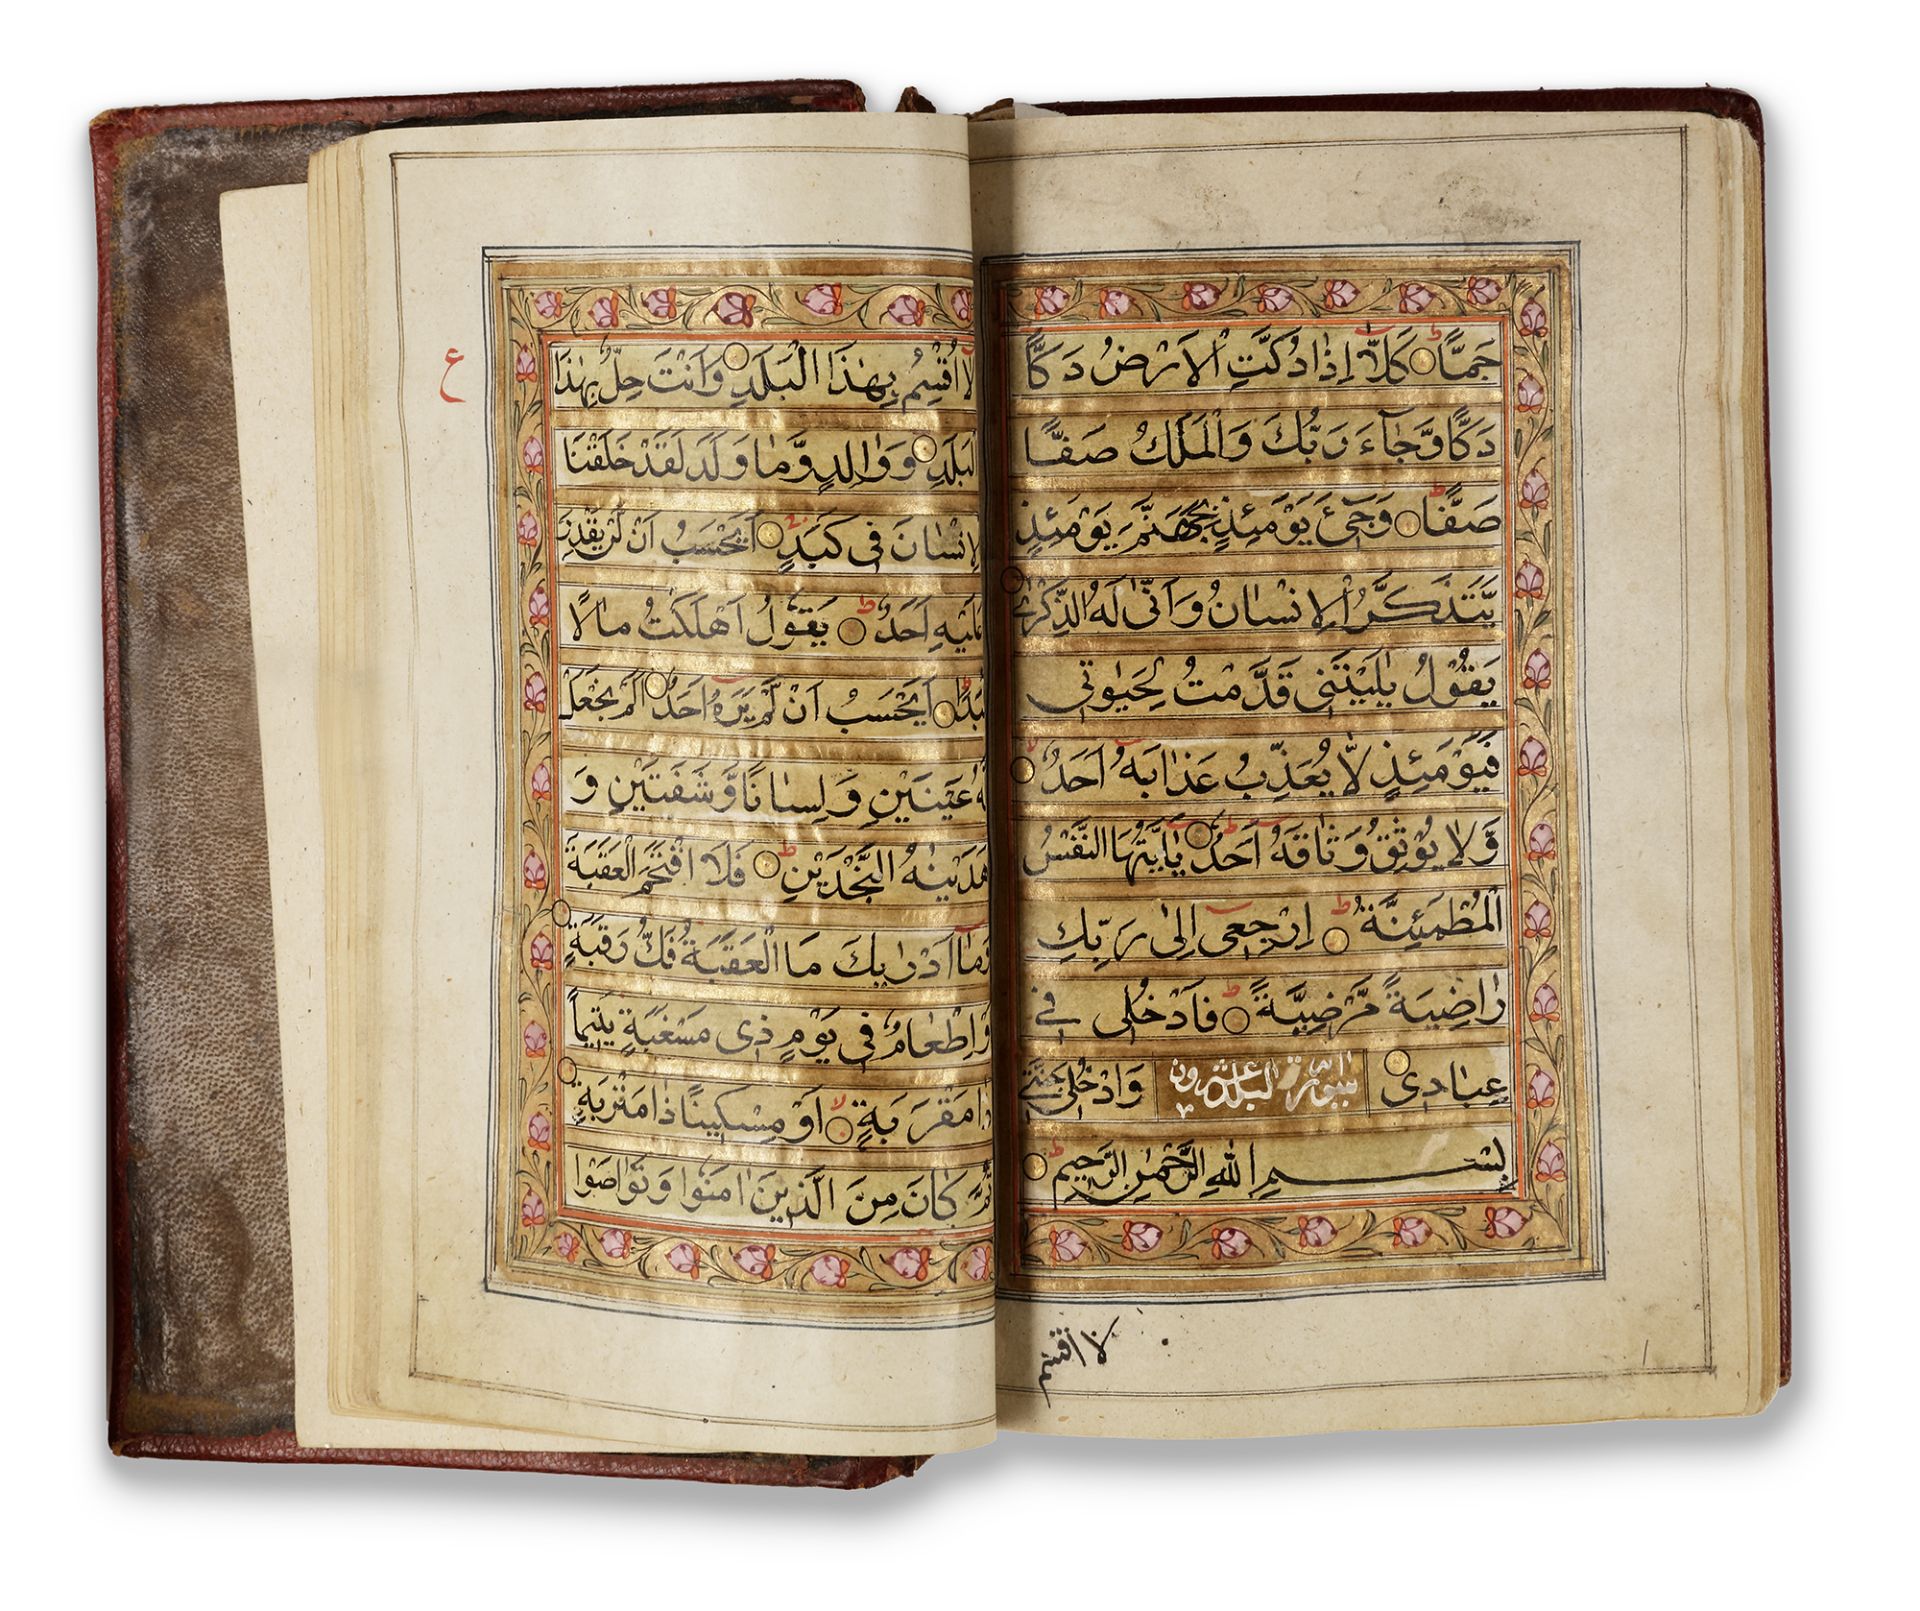 جَمًّا كَلَّا اِذَا دُكَّتِ الْاَرْضُ دَكًّا
دَكًّا وَّجَآءَ رَبُّكَ وَالْمَلَكُ صَفًّا
صَفًّا وَجِیْٓءَ یَوْمَئِذٍۭ بِجَهَنَّمَ یَوْمَئِذٍ
یَّتَذَكَّرُ الْاِنْسَانُ وَاَنّٰی لَهُ الذِّكْرٰی
یَقُوْلُ یٰلَیْتَنِیْ قَدَّمْتُ لِحَیَاتِیْ
فَیَوْمَئِذٍ لَّا یُعَذِّبُ عَذَابَهٗۤ اَحَدٌ
وَّلَا یُوْثِقُ وَثَاقَهٗۤ اَحَدٌ یٰۤاَیَّتُهَا النَّفْسُ
الْمُطْمَئِنَّةُ ارْجِعِیْۤ اِلٰی رَبِّكِ
رَاضِیَةً مَّرْضِیَّةً فَادْخُلِیْ فِیْ
عِبَادِیْ وَادْخُلِیْ جَنَّتِیْ
سورة البلد عشرون
بِسْمِ اللهِ الرَّحْمٰنِ الرَّحِیْمِ
لا اقسم
ع
لَاۤ اُقْسِمُ بِهٰذَا الْبَلَدِ وَاَنْتَ حِلٌّۢ بِهٰذَا
الْبَلَدِ وَوَالِدٍ وَّمَا وَلَدَ لَقَدْ خَلَقْنَا
الْاِنْسَانَ فِیْ كَبَدٍ اَیَحْسَبُ اَنْ لَّنْ یَّقْدِرَ
عَلَیْهِ اَحَدٌ یَقُوْلُ اَهْلَكْتُ مَالًا
لُّبَدًا اَیَحْسَبُ اَنْ لَّمْ یَرَهٗۤ اَحَدٌ اَلَمْ نَجْعَلْ
لَّهٗ عَیْنَیْنِ وَلِسَانًا وَّشَفَتَیْنِ وَ
هَدَیْنٰهُ النَّجْدَیْنِ فَلَا اقْتَحَمَ الْعَقَبَةَ
وَمَاۤ اَدْرٰىكَ مَا الْعَقَبَةُ فَكُّ رَقَبَةٍ
اَوْ اِطْعَامٌ فِیْ یَوْمٍ ذِیْ مَسْغَبَةٍ یَّتِیْمًا
ذَا مَقْرَبَةٍ اَوْ مِسْكِیْنًا ذَا مَتْرَبَةٍ
ثُمَّ كَانَ مِنَ الَّذِیْنَ اٰمَنُوْا وَتَوَاصَوْا